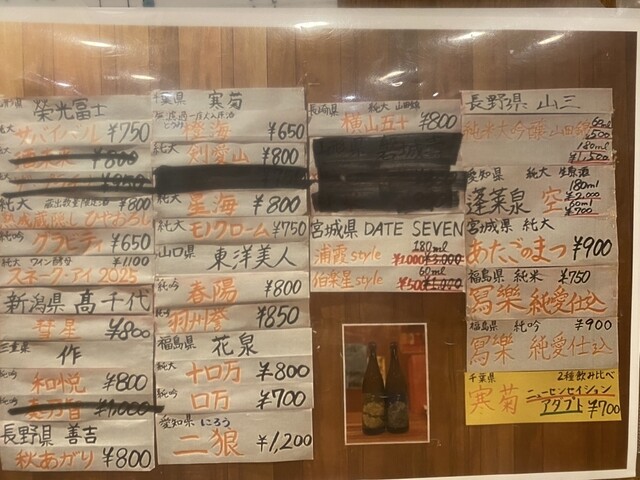 栄光冨士
純大
サバイバル ¥750
¥800
純大 蔵出数量限定酒 ¥800
熟成蔵隠し ひやおろし
純吟
グラビティ ¥650
純大 ワイン酵母 ¥1100
スネーク・アイ 2025
新潟県 高千代
彗星 ¥800
三重県 作
純吟
和悦 ¥800
¥1,000
長野県 善吉
秋あがり ¥800
千葉県 寒菊
橙海 ¥650
純大
剣愛山 ¥800
純大
星海 ¥800
純大
モノクローム ¥750
山口県 東洋美人
純吟
春陽 ¥800
羽州誉 ¥850
福島県 花泉
純大
十ロ万 ¥800
純吟
ロ万 ¥700
愛知県 にろう
二狼 ¥1,200
長崎県 純大 山田錦
横山五十 ¥800
宮城県 DATE SEVEN
180ml
浦霞style ¥1000 ¥3,000
60ml
伯楽星style ¥500
長野県 山三
純米大吟醸 山田錦
60ml
¥500
180ml
¥1,500
愛知県 純大 生原酒
蓬莱泉 空
180ml
¥2,000
60ml
¥700
宮城県 純大
あたごのまつ ¥900
福島県 純米 ¥750
寫樂 純愛仕込
福島県 純吟 ¥900
寫樂 純愛仕込
千葉県 2種飲み比べ
寒菊 ニューセンセイション
アタフト ¥700